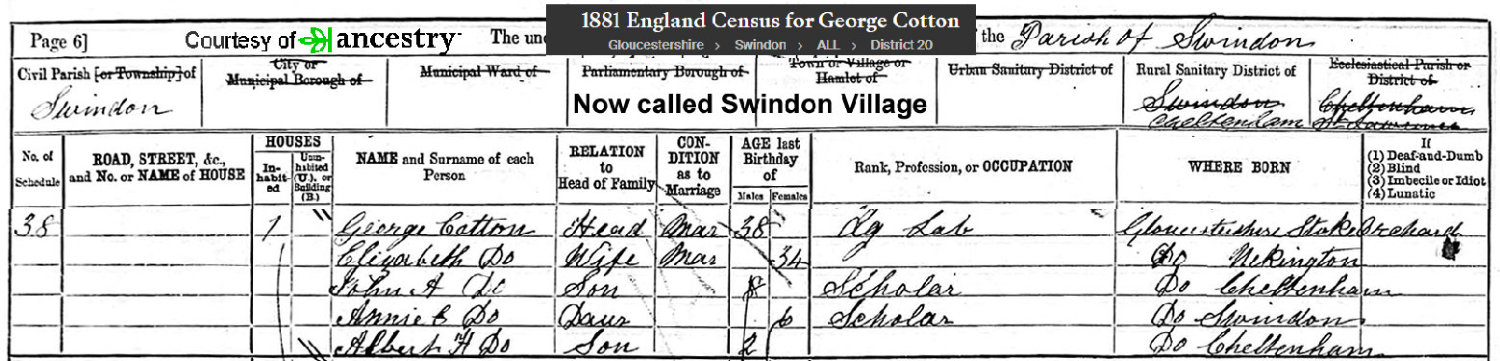 1881 England Census for George Cotton
Gloucestershire > Swindon > ALL > District 20
Page 6] Courtesy of ancestry The und the Parish of Swindon
Civil Parish [or Township] of City or Municipal Borough of Municipal Ward of Parliamentary Borough of Town or Village or Hamlet of Urban Sanitary District of Rural Sanitary District of Ecclesiastical Parish or District of
Swindon Swindon Cheltenham
Cheltenham
Now called Swindon Village
No. of Schedule ROAD, STREET, &c., and No. or NAME of HOUSE HOUSES In-habit-ed Unin-habited (U.), or Building (B.) NAME and Surname of each Person RELATION to Head of Family CON-DITION as to Marriage AGE last Birthday of Males Females Rank, Profession, or OCCUPATION WHERE BORN If (1) Deaf-and-Dumb (2) Blind (3) Imbecile or Idiot (4) Lunatic
38 1 George Cotton Head Mar 38 Ag Lab Gloucestershire Stoke Orchard
Elizabeth Do Wife Mar 34 Do Uckington
John A Do Son 8 Scholar Do Cheltenham
Annie E Do Daur 6 Scholar Do Swindon
Albert H Do Son 2 Do Cheltenham